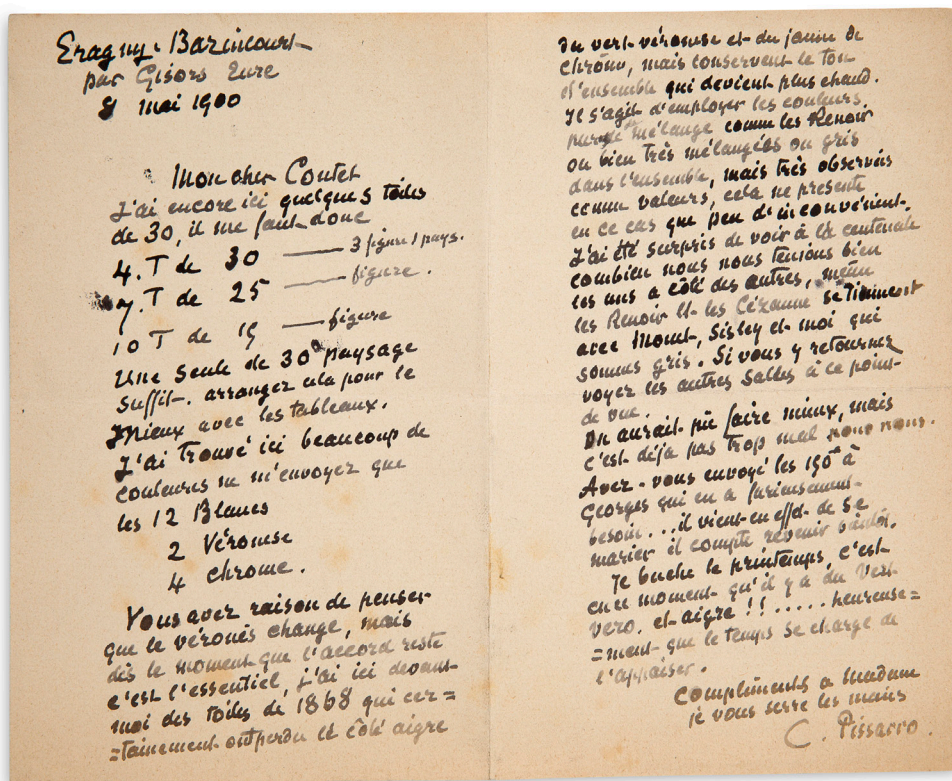 Eragny-Bazincourt
par Gisors Eure
8 mai 1900
Mon cher Contet
J'ai encore ici quelques toiles
de 30, il me faut donc
4. T de 30 — 3 figure 1 pays.
7. T de 25 — figure.
10 T de 15 — figure
Une seule de 30 paysage
suffit. arrangez cela pour le
mieux avec les tableaux.
J'ai trouvé ici beaucoup de
couleurs ne m'envoyez que
les 12 Blancs
2 Véronese
4 chrome.
Vous avez raison de penser
que le véronès change, mais
dès le moment que l'accord reste
c'est l'essentiel, j'ai ici devant
moi des toiles de 1868 qui cer=
=tainement ont perdu le côté aigre
du vert véronèse et du jaune de
chrome, mais conservent le ton
d'ensemble qui devient plus chaud.
Il s'agit d'employer les couleurs
pures mélange comme les Renoir
ou bien très mélangées ou gris
dans l'ensemble, mais très observées
comme valeurs, cela ne presente
en ce cas que peu d'inconvénient.
J'ai été surpris de voir à la centenale
combien nous nous tenions bien
les uns a côté des autres, même
les Renoir et les Cézanne se tiennent
avec Monet, Sisley et moi qui
sommes gris. Si vous y retournez
voyez les autres salles à ce point
de vue.
On aurait pû faire mieux, mais
c'est déjà pas trop mal pour nous.
Avez-vous envoyé les 150 à
Georges qui en a furieusement
besoin... il vient en effet de se
marier il compte revenir bientôt.
Je buche le printemps, c'est
en ce moment qu'il y a du Vert
vero. et aigre !! ..... heureuse=
=ment que le temps se charge de
l'appaiser.
Compliments a madame
je vous serre les mains
C. Pissarro.